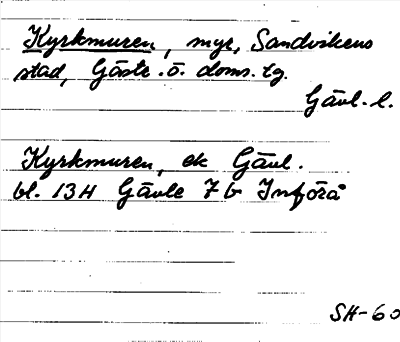 Kyrkmuren, myr, Sandvikens
stad, Gästr. ö. doms. tg.
Gävl. l.
Kyrkmuren, ek Gävl.
bl. 13H Gävle 7b Införd
SH-60